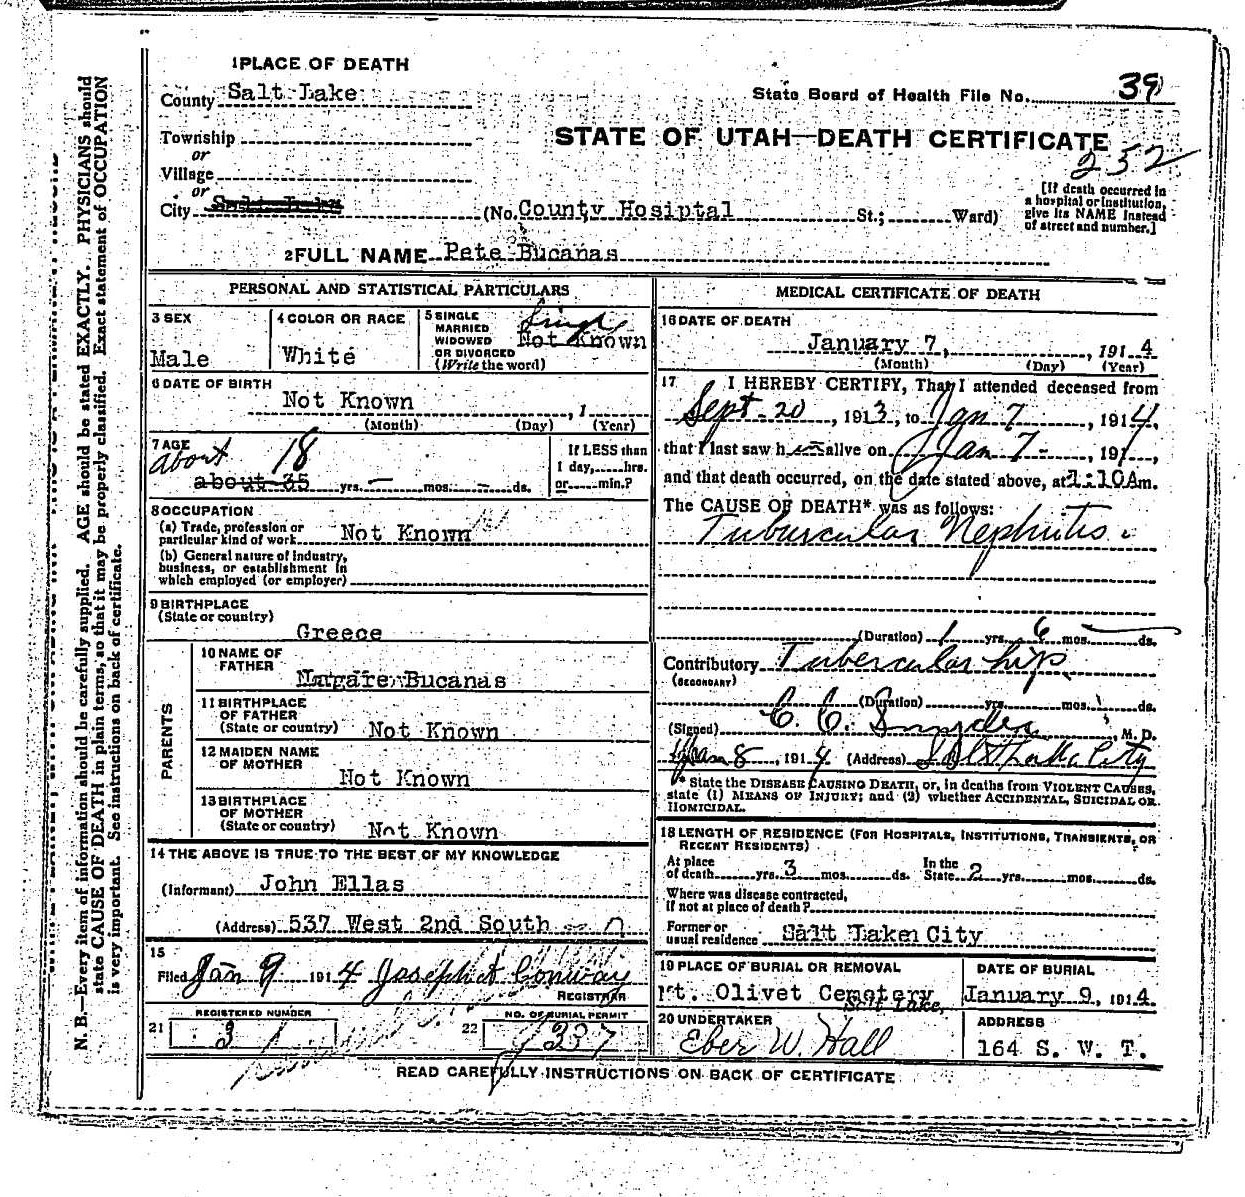 1 PLACE OF DEATH
County Salt Lake
State Board of Health File No. 39
Township
or
STATE OF UTAH—DEATH CERTIFICATE
252
Village
or
City Salt Lake (No. County Hosiptal St.; Ward)
[If death occurred in
a hospital or institution,
give its NAME instead
of street and number.]
2 FULL NAME Pete Bucanas
PERSONAL AND STATISTICAL PARTICULARS
3 SEX
Male
4 COLOR OR RACE
White
5 SINGLE
MARRIED
WIDOWED
OR DIVORCED
(Write the word)
Single
Not Known
6 DATE OF BIRTH
Not Known , 1
(Month) (Day) (Year)
7 AGE
about 18
about 35 yrs. — mos. — ds.
If LESS than
1 day, hrs.
or min.?
8 OCCUPATION
(a) Trade, profession or
particular kind of work Not Known
(b) General nature of industry,
business, or establishment in
which employed (or employer)
9 BIRTHPLACE
(State or country)
Greece
PARENTS
10 NAME OF
FATHER
Bucanas
11 BIRTHPLACE
OF FATHER
(State or country) Not Known
12 MAIDEN NAME
OF MOTHER
Not Known
13 BIRTHPLACE
OF MOTHER
(State or country) Not Known
14 THE ABOVE IS TRUE TO THE BEST OF MY KNOWLEDGE
(Informant) John Ellas
(Address) 537 West 2nd South
15
Filed Jan 9 1914 Joseph Conway
REGISTRAR
REGISTERED NUMBER
21 3
NO. OF BURIAL PERMIT
22 337
MEDICAL CERTIFICATE OF DEATH
16 DATE OF DEATH
January 7, , 1914
(Month) (Day) (Year)
17 I HEREBY CERTIFY, That I attended deceased from
Sept 20 , 1913, to Jan 7 , 1914,
that I last saw h alive on Jan 7 - , 191 ,
and that death occurred, on the date stated above, at 1:10 A m.
The CAUSE OF DEATH* was as follows:
Tubercular Nephritis.
(Duration) 1 yrs. 6 mos. ds.
Contributory Tubercular hip
(SECONDARY)
(Duration) yrs. mos. ds.
(Signed) C. C. Snyder , M. D.
Jan 8 , 1914 (Address) City
* State the DISEASE CAUSING DEATH, or, in deaths from VIOLENT CAUSES,
state (1) MEANS OF INJURY; and (2) whether ACCIDENTAL, SUICIDAL OR
HOMICIDAL.
18 LENGTH OF RESIDENCE (FOR HOSPITALS, INSTITUTIONS, TRANSIENTS, OR
RECENT RESIDENTS)
At place
of death yrs. 3 mos. ds.
In the
State 2 yrs. mos. ds.
Where was disease contracted,
if not at place of death?
Former or
usual residence Salt Lake City
19 PLACE OF BURIAL OR REMOVAL
Mt. Olivet Cemetery
Salt Lake,
DATE OF BURIAL
January 9, 1914.
20 UNDERTAKER
Eber W. Hall
ADDRESS
164 S. W. T.
READ CAREFULLY INSTRUCTIONS ON BACK OF CERTIFICATE
N. B.—Every item of information should be carefully supplied. AGE should be stated EXACTLY. PHYSICIANS should
state CAUSE OF DEATH in plain terms, so that it may be properly classified. Exact statement of OCCUPATION
is very important. See instructions on back of certificate.